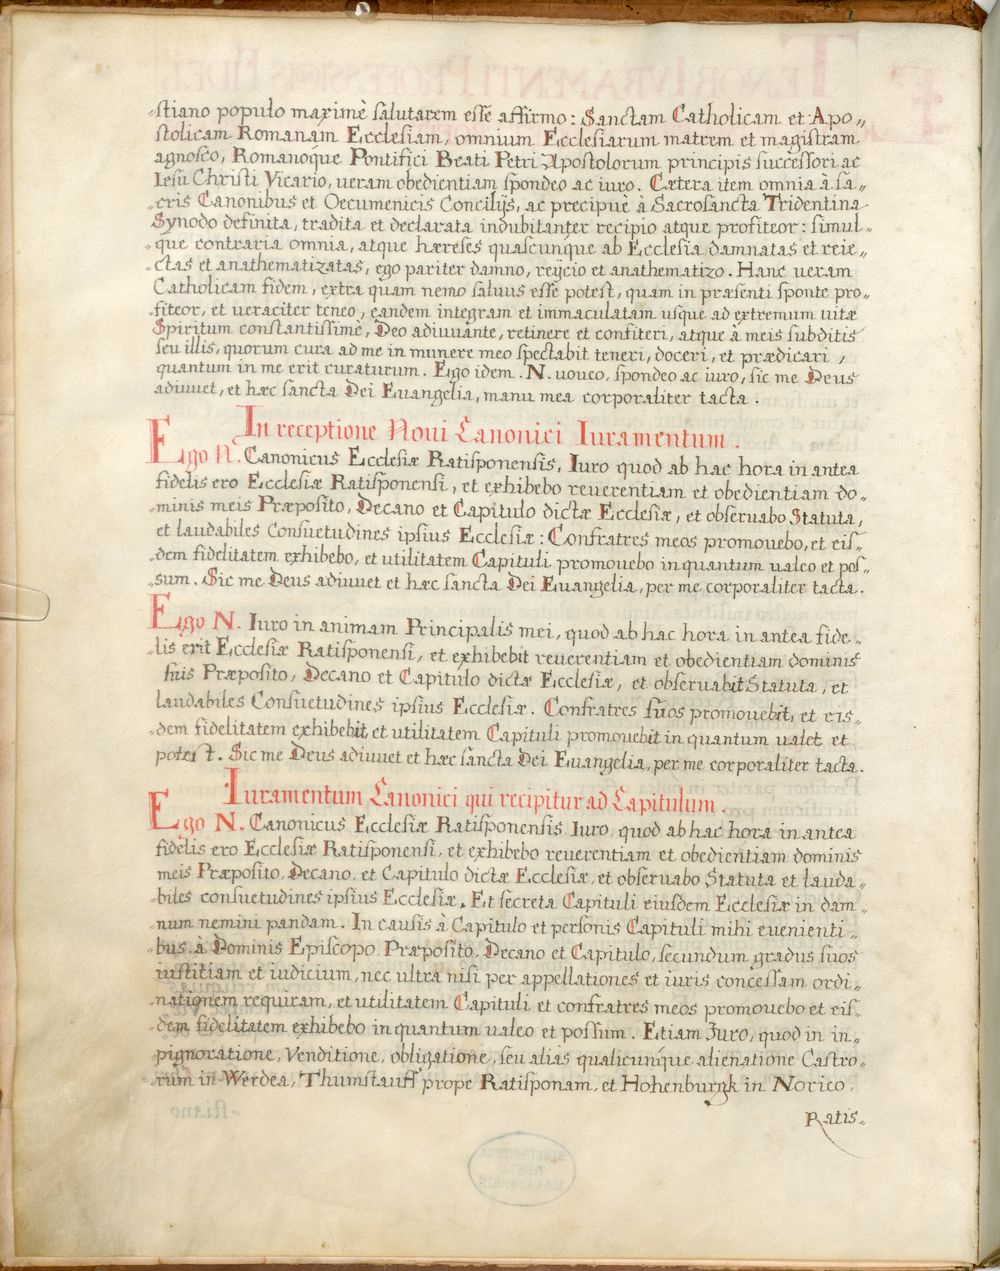 -stiano populo maximè salutarem esse affirmo: Sanctam Catholicam et Apo-
stolicam Romanam Ecclesiam, omnium Ecclesiarum matrem et magistram
agnosco, Romanoque Pontifici Beati Petri Apostolorum principis successori ac
Iesu Christi Vicario, ueram obedientiam spondeo ac iuro. Cætera item omnia à sa-
-cris Canonibus et Oecumenicis Concilijs, ac precipue à Sacrosancta Tridentina
Synodo definita, tradita et declarata indubitanter recipio atque profiteor: simul-
-que contraria omnia, atque hæreses quascunque ab Ecclesia damnatas et reie-
-ctas et anathematizatas, ego pariter damno, reijcio et anathematizo. Hanc ueram
Catholicam fidem, extra quam nemo saluus esse potest, quam in præsenti sponte pro-
-fiteor, et ueraciter teneo, eandem integram et immaculatam usque ad extremum uitæ
Spiritum constantissimè, Deo adiuuante, retinere et confiteri, atque à meis subditis
seu illis, quorum cura ad me in munere meo spectabit teneri, doceri, et prædicari,
quantum in me erit curaturum. Ego idem .N. uoueo, spondeo ac iuro, sic me Deus
adiuuet, et hæc sancta Dei Euangelia, manu mea corporaliter tacta.
In receptione Noui Canonici Iuramentum.
Ego N. Canonicus Ecclesiæ Ratisponensis, Iuro quod ab hac hora in antea
fidelis ero Ecclesiæ Ratisponensi, et exhibebo reuerentiam et obedientiam do-
-minis meis Præposito, Decano et Capitulo dictæ Ecclesiæ, et obseruabo Statuta,
et laudabiles Consuetudines ipsius Ecclesiæ: Confratres meos promouebo, et eis-
-dem fidelitatem exhibebo, et utilitatem Capituli promouebo in quantum ualeo et pos-
-sum. Sic me Deus adiuuet et hæc sancta Dei Euangelia, per me corporaliter tacta.
Ego N. Iuro in animam Principalis mei, quod ab hac hora in antea fide-
-lis erit Ecclesiæ Ratisponensi, et exhibebit reuerentiam et obedientiam dominis
suis Præposito, Decano et Capitulo dictæ Ecclesiæ, et obseruabit Statuta, et
laudabiles Consuetudines ipsius Ecclesiæ. Confratres suos promouebit, et eis-
-dem fidelitatem exhibebit, et utilitatem Capituli promouebit in quantum ualet et
potest. Sic me Deus adiuuet et hæc sancta Dei Euangelia, per me corporaliter tacta.
Iuramentum Canonici qui recipitur ad Capitulum.
Ego N. Canonicus Ecclesiæ Ratisponensis Iuro, quod ab hac hora in antea
fidelis ero Ecclesiæ Ratisponensi, et exhibebo reuerentiam et obedientiam dominis
meis Præposito, Decano, et Capitulo dictæ Ecclesiæ, et obseruabo Statuta et lauda-
-biles consuetudines ipsius Ecclesiæ. Et secreta Capituli eiusdem Ecclesiæ in dam-
-num nemini pandam. In causis à Capitulo et personis Capituli mihi euenienti-
-bus, à Dominis Episcopo, Præposito, Decano et Capitulo, secundum gradus suos
iustitiam et iudicium, nec ultra nisi per appellationes et iuris concessam ordi-
-nationem requiram, et utilitatem Capituli et confratres meos promouebo et eis-
-dem fidelitatem exhibebo in quantum ualeo et possum. Etiam Iuro, quod in in-
-pignoratione, Venditione, obligatione, seu alias qualicunque alienatione Castro-
-rum in Werdea, Thumstauff prope Ratisponam, et Hohenburgk in Norico,
Ratis-
BIBLIOTHECA
REGIA
MONACENSIS